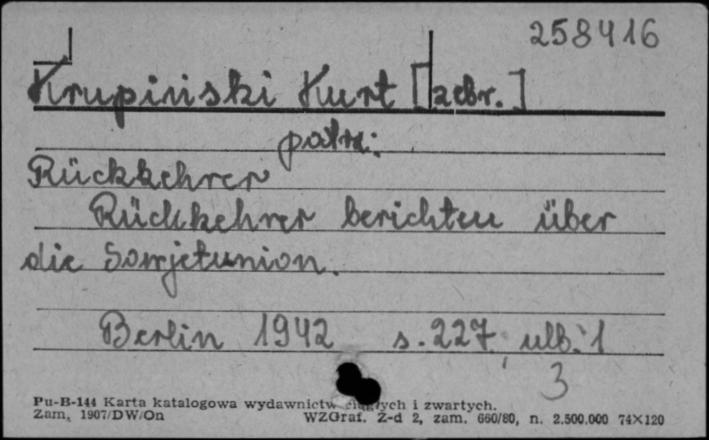 258416
Krupiński Kurt [zebr.]
patrz:
Rückkehrer
Rückkehrer berichten über
die Sowjetunion.
Berlin 1942 s. 227, ulb. 1
3
Pu-B-144 Karta katalogowa wydawnictw ciągłych i zwartych.
Zam. 1907/DW/On WZGraf. Z-d 2, zam. 660/80, n. 2.500.000 74X120